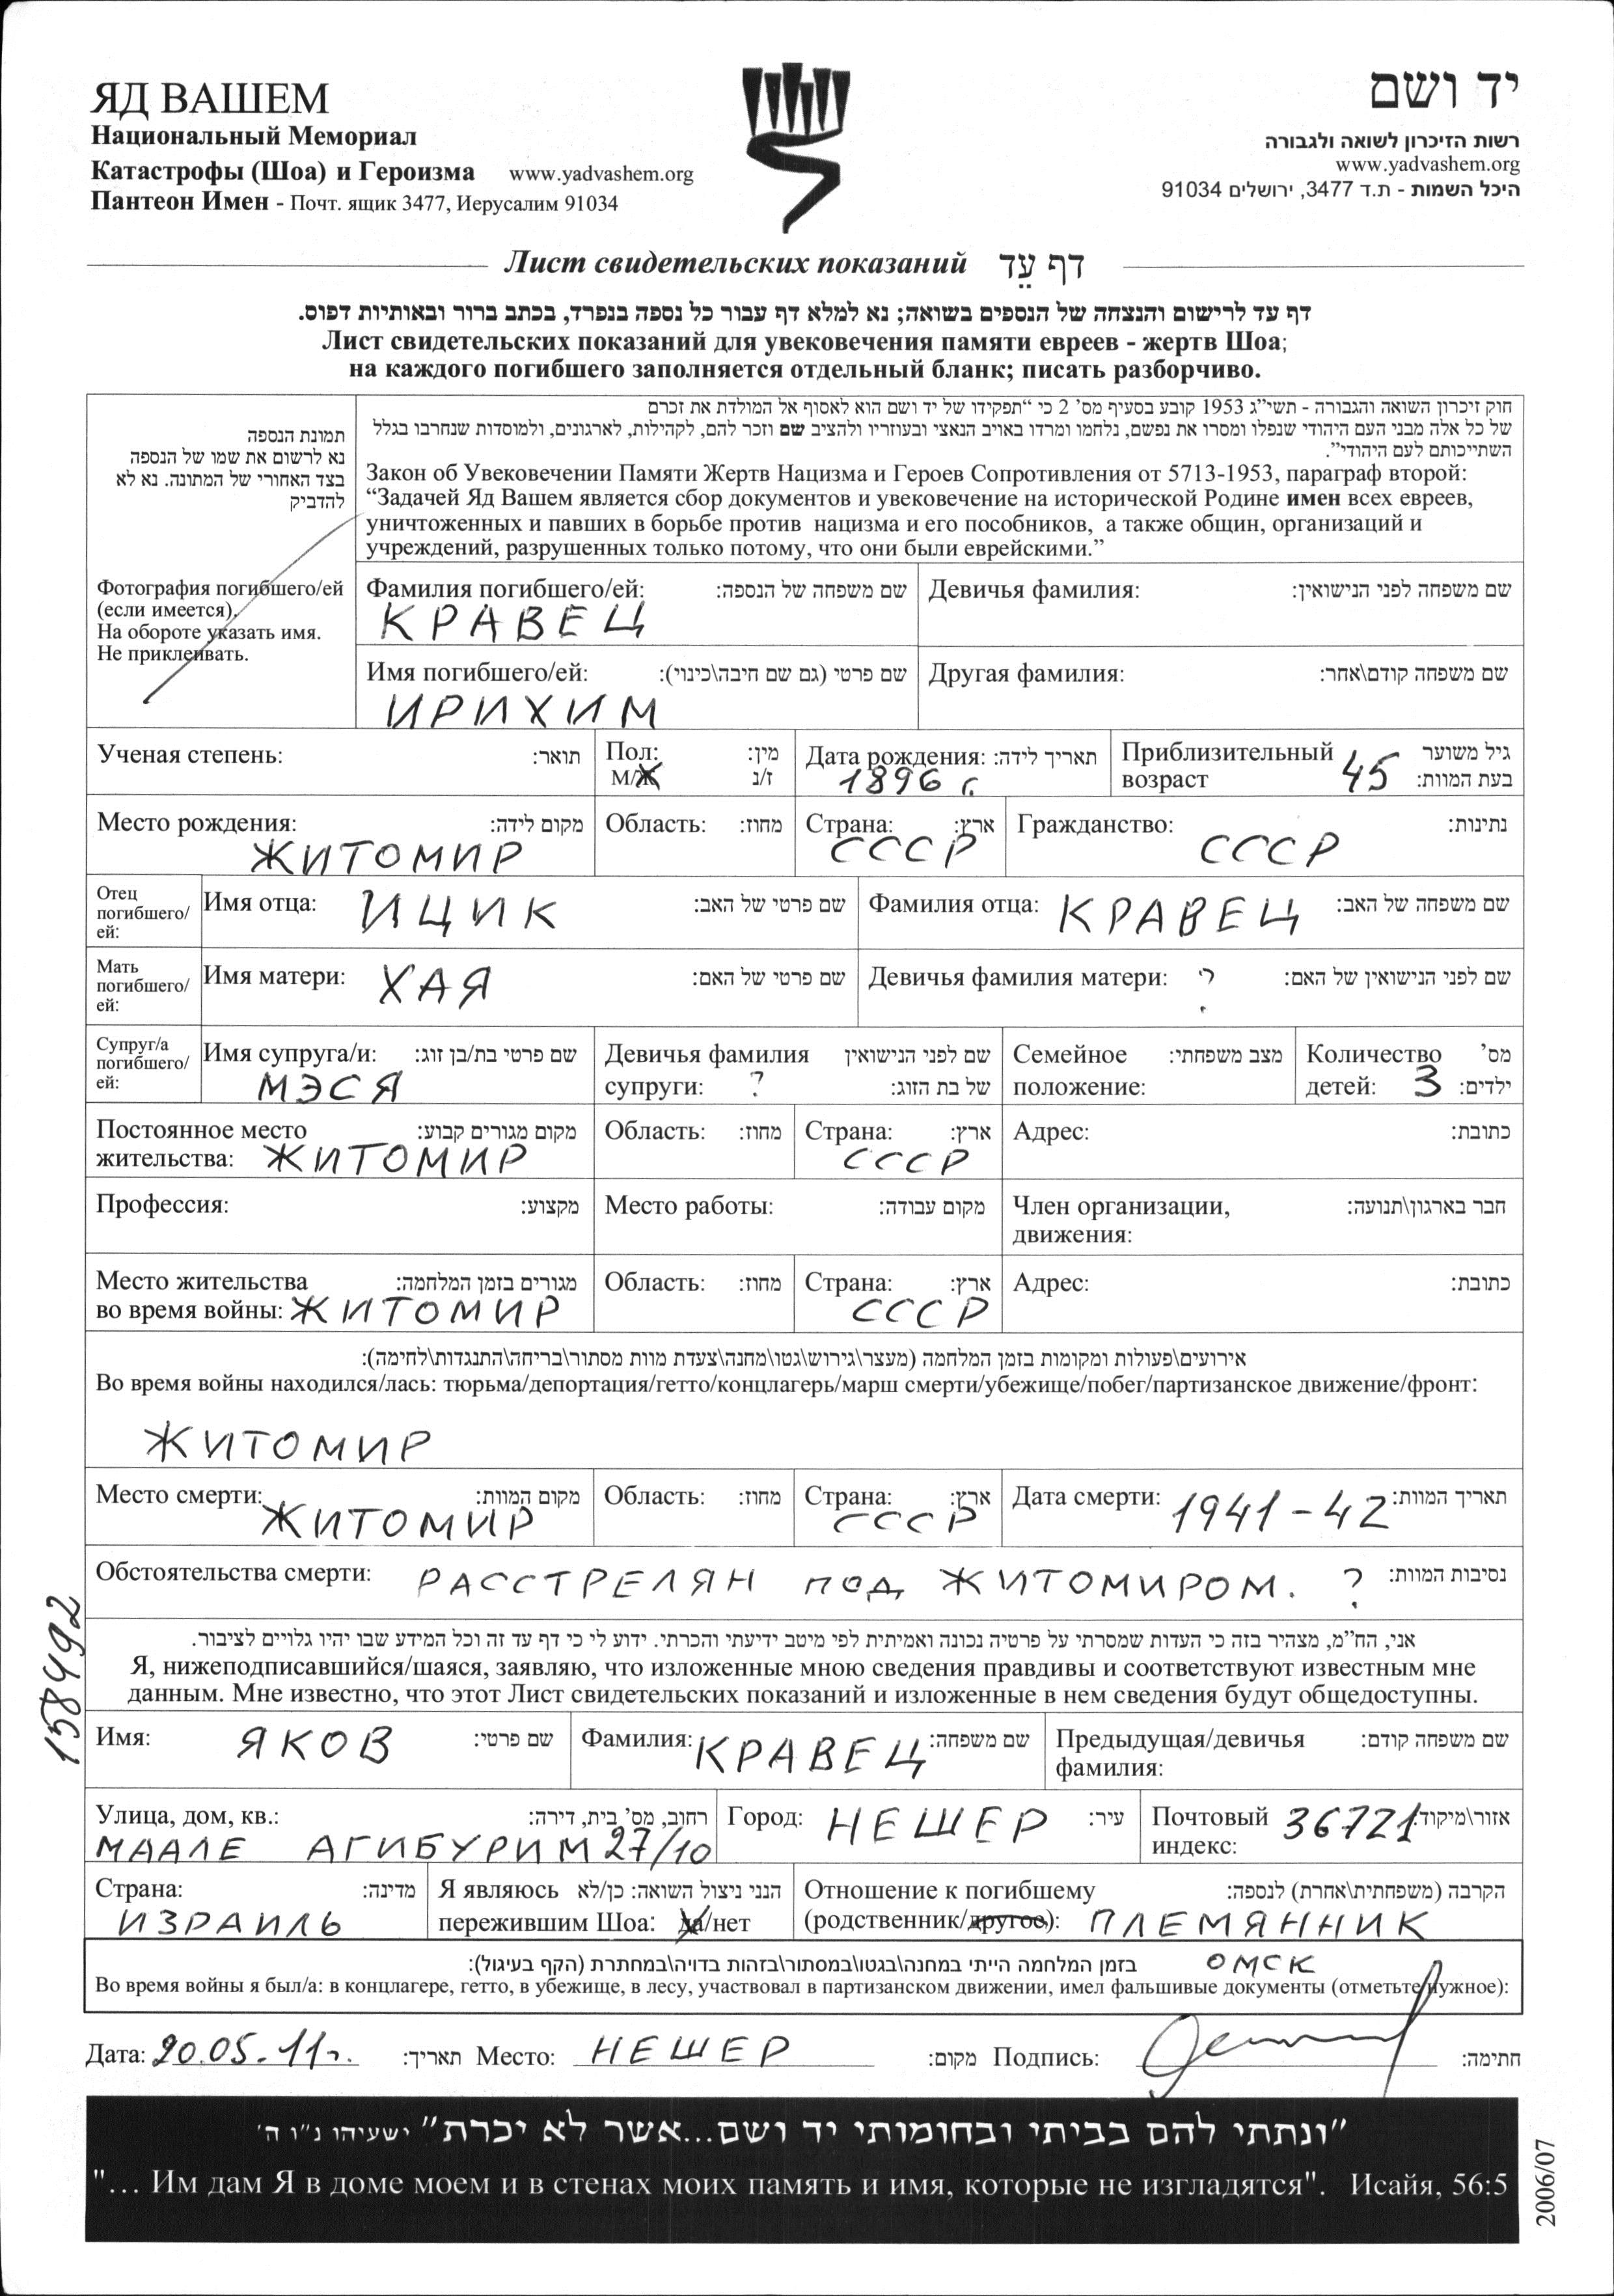 ЯД ВАШЕМ
Национальный Мемориал
Катастрофы (Шоа) и Героизма www.yadvashem.org
Пантеон Имен - Почт. ящик 3477, Иерусалим 91034
יד ושם
רשות הזיכרון לשואה ולגבורה
www.yadvashem.org
היכל השמות - ת.ד 3477, ירושלים 91034
Лист свидетельских показаний דף עֵד
דף עד לרישום והנצחה של הנספים בשואה; נא למלא דף עבור כל נספה בנפרד, בכתב ברור ובאותיות דפוס.
Лист свидетельских показаний для увековечения памяти евреев - жертв Шоа;
на каждого погибшего заполняется отдельный бланк; писать разборчиво.
תמונת הנספה
נא לרשום את שמו של הנספה
בצד האחורי של המתונה. נא לא
להדביק
Фотография погибшего/ей
(если имеется).
На обороте указать имя.
Не приклеивать.
חוק זיכרון השואה והגבורה - תשי"ג 1953 קובע בסעיף מס' 2 כי "תפקידו של יד ושם הוא לאסוף אל המולדת את זכרם
של כל אלה מבני העם היהודי שנפלו ומסרו את נפשם, נלחמו ומרדו באויב הנאצי ובעוזריו ולהציב שם וזכר להם, לקהילות, לארגונים, ולמוסדות שנחרבו בגלל
השתייכותם לעם היהודי".
Закон об Увековечении Памяти Жертв Нацизма и Героев Сопротивления от 5713-1953, параграф второй:
“Задачей Яд Вашем является сбор документов и увековечение на исторической Родине имен всех евреев,
уничтоженных и павших в борьбе против нацизма и его пособников, а также общин, организаций и
учреждений, разрушенных только потому, что они были еврейскими.”
Фамилия погибшего/ей: שם משפחה של הנספה:
КРАВЕЦ
Девичья фамилия: שם משפחה לפני הנישואין:
Имя погибшего/ей: שם פרטי (גם שם חיבה\כינוי):
ИРИХИМ
Другая фамилия: שם משפחה קודם\אחר:
Ученая степень: תואר:
Пол: מין:
М/Ж ז/נ
Дата рождения: תאריך לידה:
1896 г.
Приблизительный גיל משוער
возраст 45 בעת המוות:
Место рождения: מקום לידה:
ЖИТОМИР
Область: מחוז:
Страна: ארץ:
СССР
Гражданство: נתינות:
СССР
Отец
погибшего/
ей:
Имя отца: ИЦИК שם פרטי של האב:
Фамилия отца: КРАВЕЦ שם משפחה של האב:
Мать
погибшего/
ей:
Имя матери: ХАЯ שם פרטי של האם:
Девичья фамилия матери: ? שם לפני הנישואין של האם:
Супруг/а
погибшего/
ей:
Имя супруга/и: שם פרטי בת/בן זוג:
МЭСЯ
Девичья фамилия שם לפני הנישואין
супруги: ? של בת הזוג:
Семейное מצב משפחתי:
положение:
Количество מס'
детей: 3 ילדים:
Постоянное место מקום מגורים קבוע:
жительства: ЖИТОМИР
Область: מחוז:
Страна: ארץ:
СССР
Адрес: כתובת:
Профессия: מקצוע:
Место работы: מקום עבודה:
Член организации, חבר בארגון\תנועה:
движения:
Место жительства מגורים בזמן המלחמה:
во время войны: ЖИТОМИР
Область: מחוז:
Страна: ארץ:
СССР
Адрес: כתובת:
אירועים\פעולות ומקומות בזמן המלחמה (מעצר\גירוש\גטו\מחנה\צעדת מוות מסתור\בריחה\התנגדות\לחימה):
Во время войны находился/лась: тюрьма/депортация/гетто/концлагерь/марш смерти/убежище/побег/партизанское движение/фронт:
ЖИТОМИР
Место смерти: מקום המוות:
ЖИТОМИР
Область: מחוז:
Страна: ארץ:
СССР
Дата смерти: 1941-42 תאריך המוות:
Обстоятельства смерти: РАССТРЕЛЯН ПОД ЖИТОМИРОМ. ? נסיבות המוות:
אני, הח"מ, מצהיר בזה כי העדות שמסרתי על פרטיה נכונה ואמיתית לפי מיטב ידיעתי והכרתי. ידוע לי כי דף עד זה וכל המידע שבו יהיו גלויים לציבור.
Я, нижеподписавшийся/шаяся, заявляю, что изложенные мною сведения правдивы и соответствуют известным мне
данным. Мне известно, что этот Лист свидетельских показаний и изложенные в нем сведения будут общедоступны.
158492
Имя: ЯКОВ שם פרטי:
Фамилия: КРАВЕЦ שם משפחה:
Предыдущая/девичья שם משפחה קודם:
фамилия:
Улица, дом, кв.: רחוב, מס' בית, דירה:
МААЛЕ АГИБУРИМ 27/10
Город: НЕШЕР עיר:
Почтовый 36721 אזור\מיקוד:
индекс:
Страна: מדינה:
ИЗРАИЛЬ
Я являюсь הנני ניצול השואה: כן/לא
пережившим Шоа: да/нет
Отношение к погибшему הקרבה (משפחתית\אחרת) לנספה:
(родственник/другое): ПЛЕМЯННИК
בזמן המלחמה הייתי במחנה\בגטו\במסתור\בזהות בדויה\במחתרת (הקף בעיגול): ОМСК
Во время войны я был/а: в концлагере, гетто, в убежище, в лесу, участвовал в партизанском движении, имел фальшивые документы (отметьте нужное):
Дата: 20.05.11г. תאריך: Место: НЕШЕР מקום: Подпись: חתימה:
"ונתתי להם בביתי ובחומותי יד ושם...אשר לא יכרת" ישעיהו נ"ו ה'
"... Им дам Я в доме моем и в стенах моих память и имя, которые не изгладятся". Исайя, 56:5
2006/07